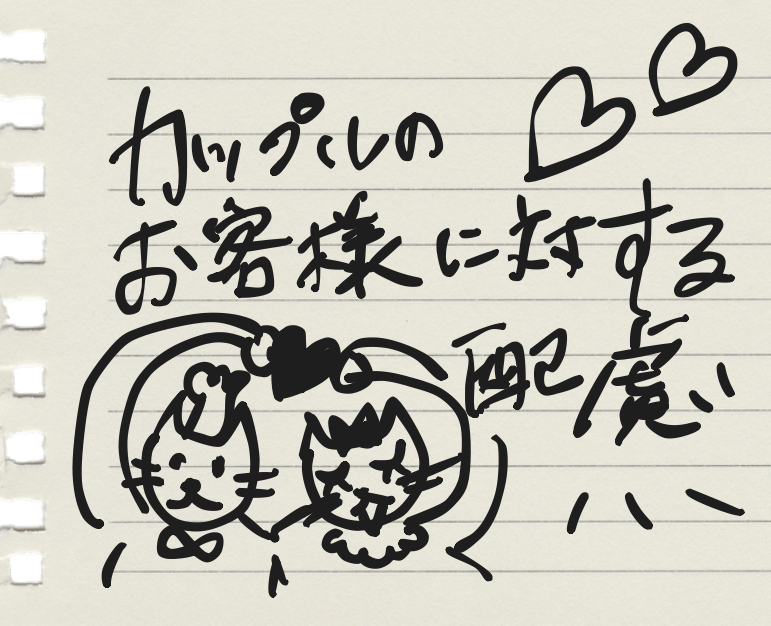 カップルの
お客様に対する
配慮